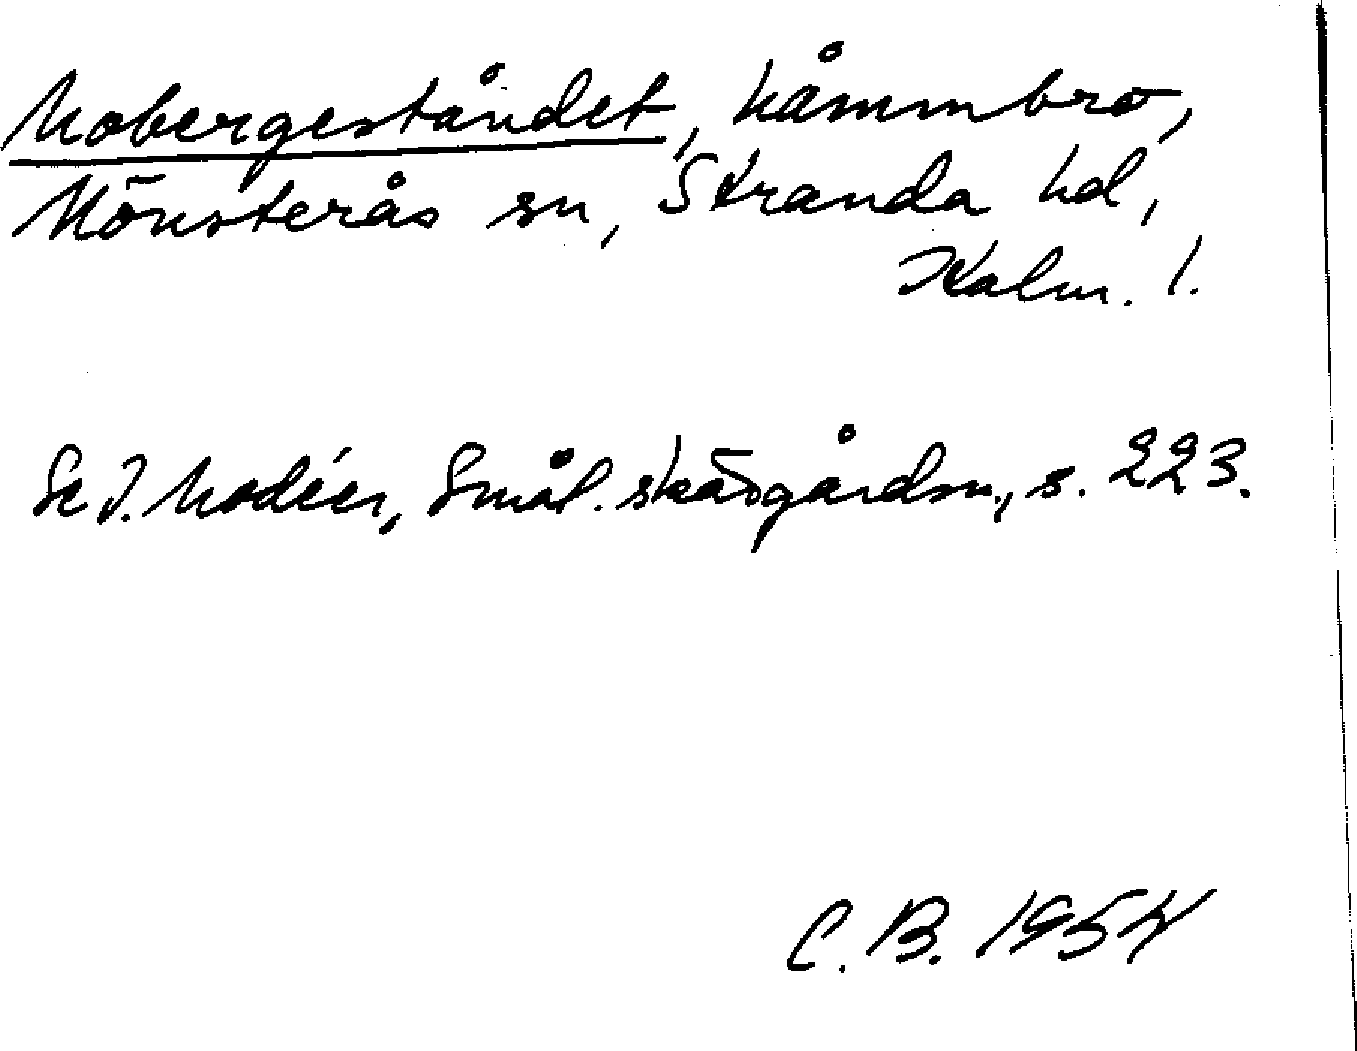 Mobergeståndet, Håmmbro,
Mönsterås sn, Stranda hd,
Kalm. l.
Se I. Modéer, Smål. skärgårdsn., s. 223.
C. B. 1954